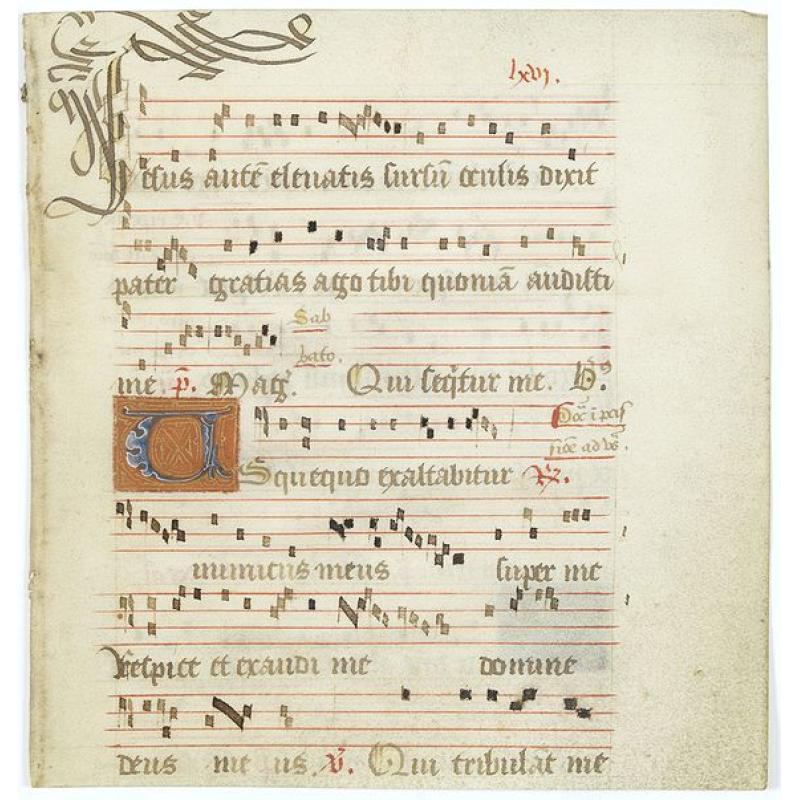 lxvj.
Iesus autē eleuatis sursū oculis dixit
pater gratias ago tibi quoniā audisti
Sab
bato.
me. p̄. Mag̃. Qui seq̄tur me.
Usquequo exaltabitur ℟.
inimicus meus super me
Respice et exaudi me domine
deus me us. ℣. Qui tribulāt me